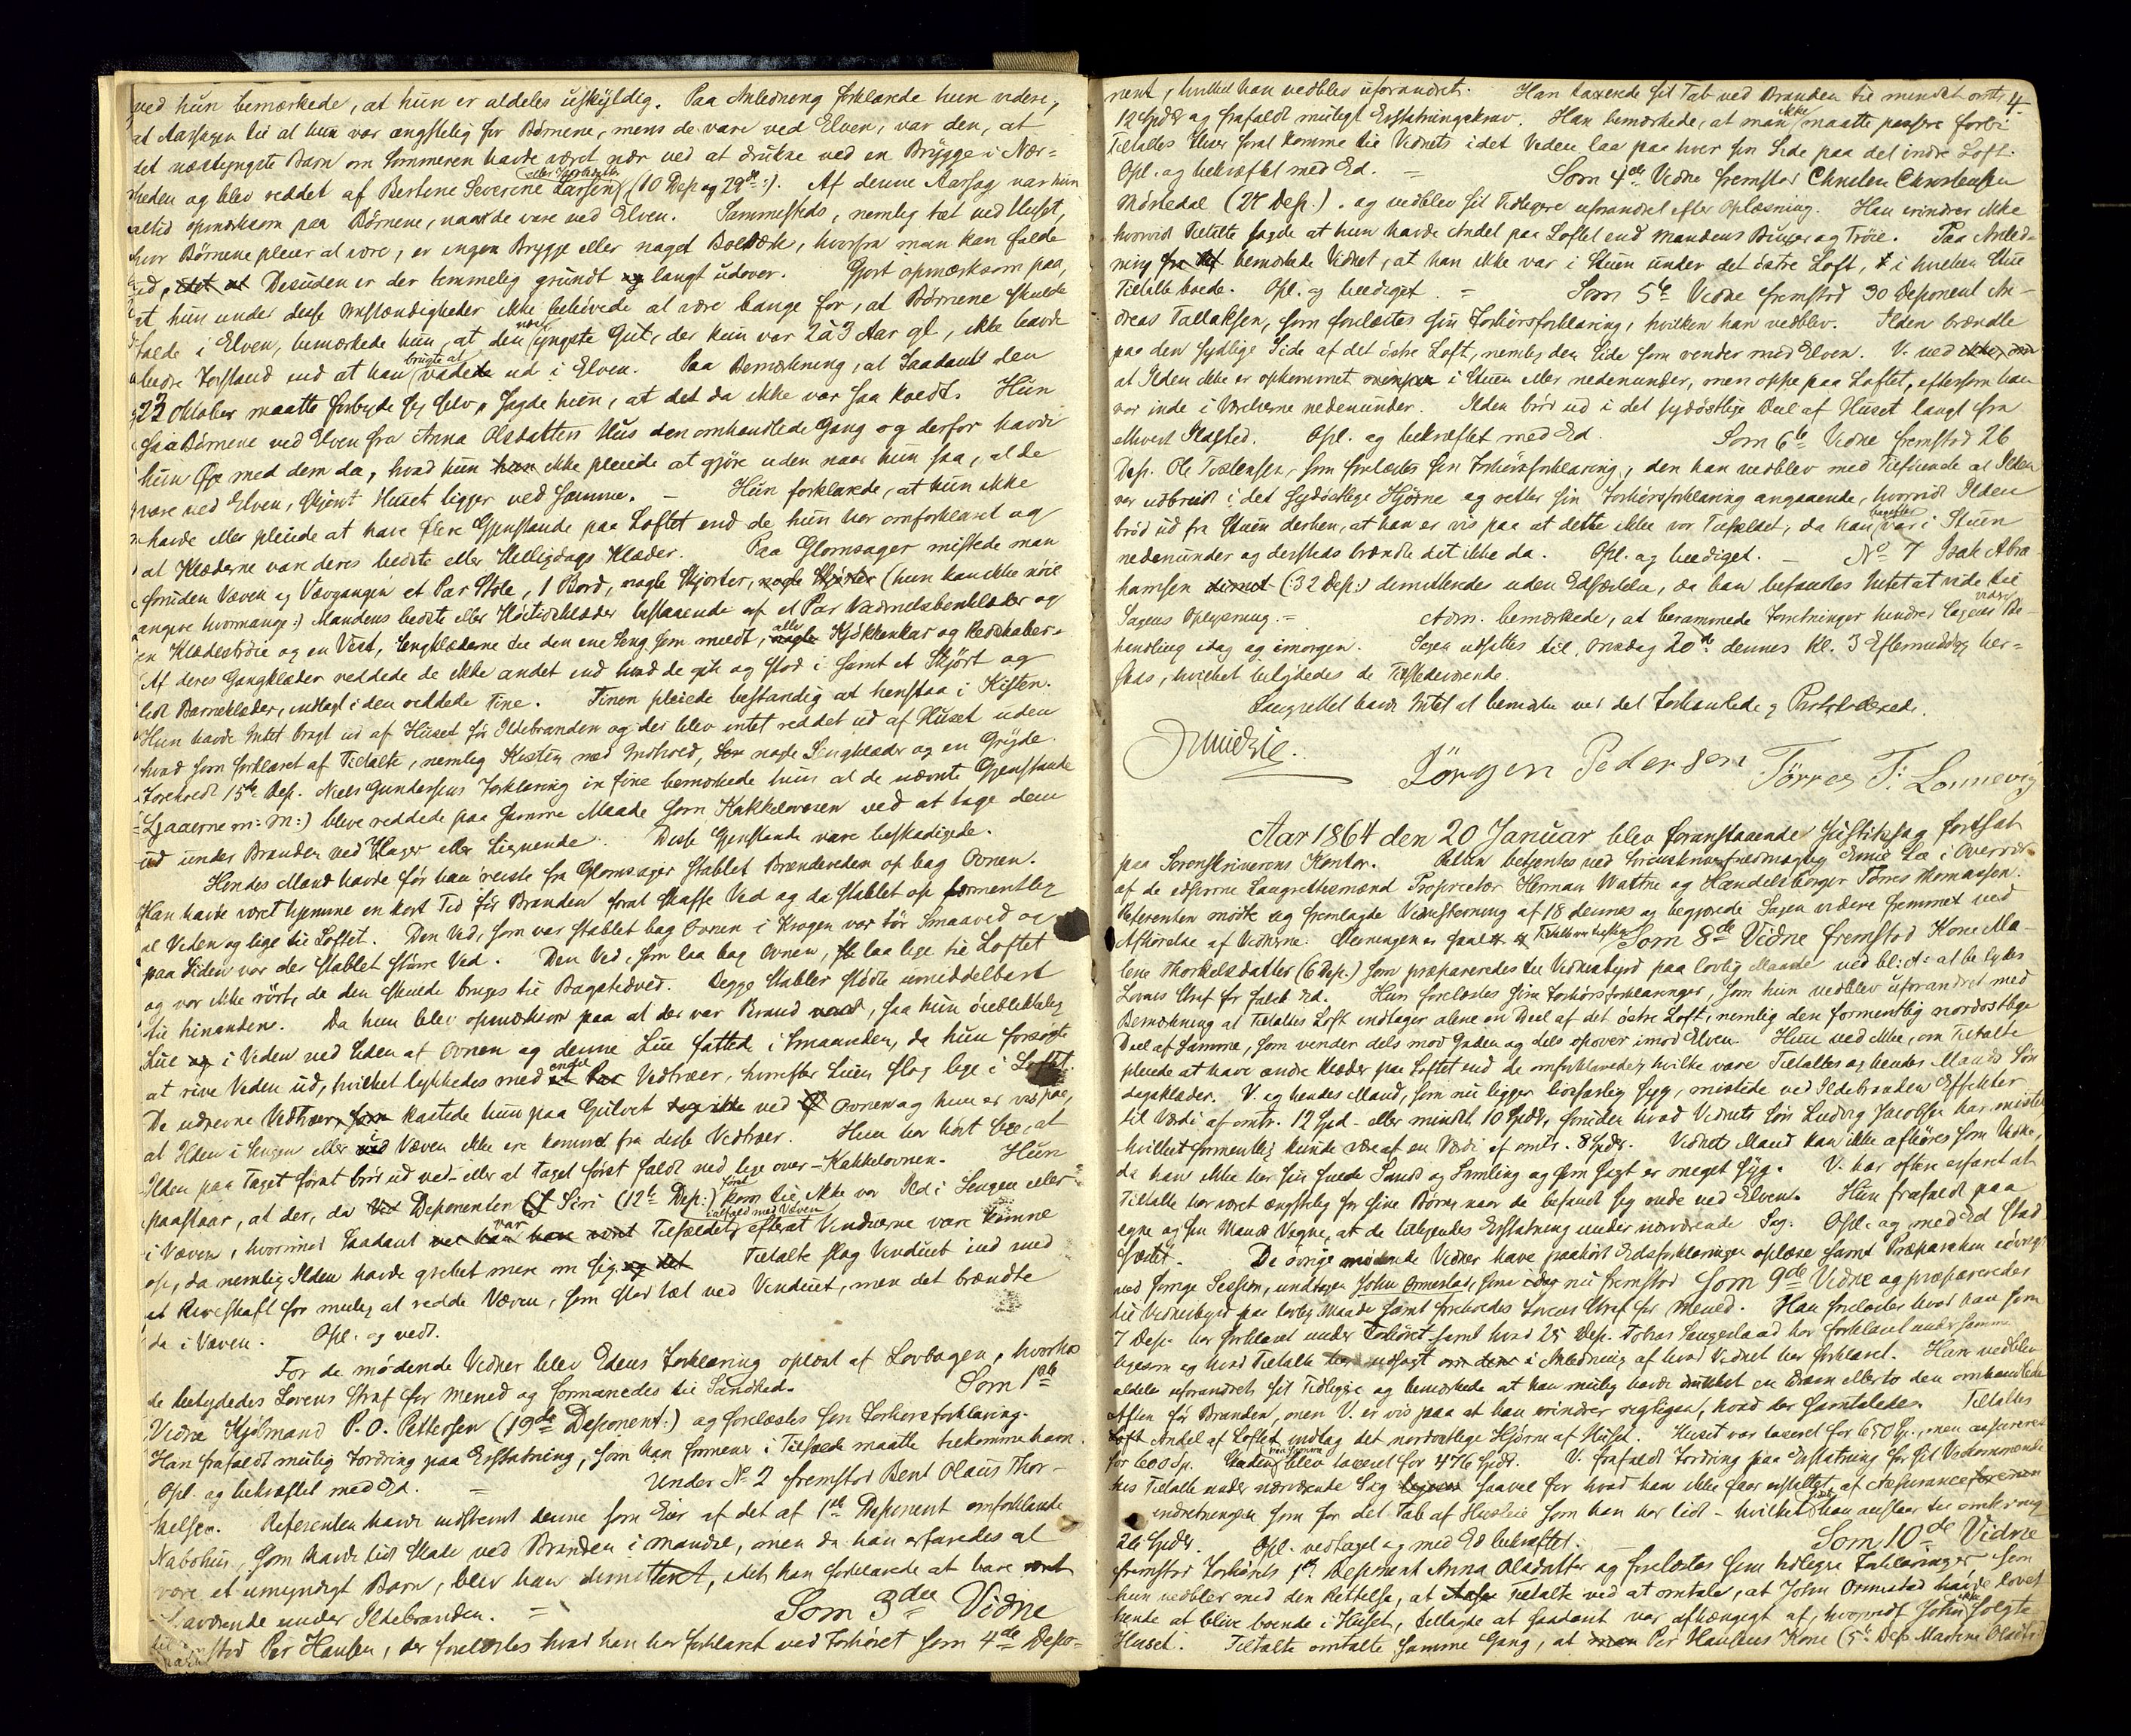 ved hun bemærkede, at hun er aldeles uskyldig. Paa Anledning forklarede hun videre,
at Aarsagen til at hun var ængstelig for Børnene, mens de vare ved Elven, var den, at
det næstyngste Barn om Sommeren havde været nær ved at drukne ved en Brygge i Nær=
heden og blev reddet af Bertine Severine Larsen (10 Dep og 29de :). Af denne Aarsag var hun
altid opmærksom paa Børnene, naar de vare ved Elven. Sammesteds, nemlig tæt ved Huset,
hvor Børnene pleier at være, er ingen Brygge eller noget Bolværk, hvorfra man kan falde
ud, idet at Desuden er der temmelig grundt og langt udover. Gjort opmærksom paa,
at hun under disse Omstændigheder ikke behøvede at være bange for, at Børnene skulde
falde i Elven, bemærkede hun, at den næst yngste Gut, der kun var 2 à 3 Aar gl, ikke havde
bedre Forstand end at han brugte at vade ud i Elven. Paa Bemærkning, at Saadant den
22 Oktober maatte forbyde sig selv, sagde hun, at det da ikke var saa koldt. Hun
saa Børnene ved Elven fra Anna Olsdatters Hus den omhandlede Gang og derfor havde
hun Øie med dem da, hvad hun han ikke pleiede at gjøre uden naar hun saa, at de
vare ved Elven, skjønt Huset ligger ved samme. – Hun forklarede, at hun ikke
havde eller pleiede at have flere Gjenstande paa Loftet end de hun har omforklaret og
at Klæderne var deres bedste eller Helligdags Klæder. Paa Glomsager mistede man
foruden Væven og Vævgangen et Par Stole, 1 Bord, nogle Skjorter, nogle Skjørter (hun kan ikke nöie
angive hvormange :) Mandens bedste eller Høitidsklæder bestaaende af et Par Vadmelsbenklæder og
en Klædestrøie og en Vest, Sengklæderne til den ene Seng som meldt, alle nogle Kjøkkenkar og Redskaber.
Af deres Gangklæder reddede de ikke andet end hvad de gik og stod i samt et Skjört og
lidt Barneklæder, indlagt i den reddede Tine. Tinen pleiede bestandig at henstaa i Kisten.
Hun havde Intet bragt ud af Huset før Ildebranden og der blev intet reddet ud af Huset uden
hvad som forklaret af Tiltalte, nemlig Kisten med Indhold, nogle Sengklæder og en Gryde.
Foreholdt 15de Dep. Niels Gundersens Forklaring in fine bemærkede hun at de nævnte Gjenstande
(: Ljaaerne m: m:) bleve reddede paa samme Maade som Kakkelovnen ved at tage dem
ud under Branden ved Hager eller Lignende. Disse Gjenstande vare beskadigede.
Hendes Mand havde før han reiste fra Glomsager stablet Brændeveden op bag Ovnen.
Han havde været hjemme en kort Tid før Branden forat skaffe Ved og da stablet op formentlig
al Veden og lige til Loftet. Den Ved, som var stablet bag Ovnen i Krogen var tör Smaaved og
paa Siden var der stablet större Ved. Den Ved, som laa bag Ovnen, laa lige til Loftet
og var ikke rört, da den skulde bruges til Bagstedved. Begge Stabler stødte umiddelbart
til hinanden. Da hun blev opmærksom paa at der var Brand, saa hun öieblikkelig
Lue og i Veden ved Siden af Ovnen og denne Lue fattede i Smaaveden, da hun forsøgte
at rive Veden ud, hvilket lykkedes med nogle et Par Vedtræer, hvorefter Luen slog lige i Loftet.
De udrevne Vedtræer, som kastede hun paa Gulvet ved Ovnen og hun er vis paa,
at Ilden i Sengen eller ved Væven ikke ere kommet fra disse Vedtræer. Hun har hört sige, at
Ilden paa Taget først bröt ud ved – eller at Taget først faldt ned lige over – Kakkelovnen. Hun
paastaar, at der, da Deponenten Siri (12te Dep.:) först kom til, ikke var Ild i Sengen eller
i Væven, hvorimod Saadant var Tilfældet ialfald med Væven efterat Vinduerne vare komne
op, da nemlig Ilden havde grebet mere om sig. Tiltalte slog Vinduet ind med
et Riveskaft for mulig at redde Væven, som stod tæt ved Vinduet, men det brændte
da i Væven. Opl. og vedt.
For de mødende Vidner blev Edens Forklaring oplæst af Lovbogen, hvorhos
de betydedes Lovens Straf for Meened og formanedes til Sandhed. Som 1ste
Vidne Kjøbmand P. O. Pettersen (19de Deponent:) og forelæstes sin Forhørsforklaring.
Han frafaldt mulig Fordring paa Erstatning, som han formener i Tilfælde maatte tilkomme ham.
Opl. og bekræftet med Ed. = Under No 2 fremstod Bent Olaus Thor=
kelsen. Referenten havde indstevnt denne som Eier af det af 1ste Deponent omforklarede
Nabohus, som havde lidt Skade ved Branden i Mandal, men da han erfaredes at
være et umyndigt Barn, blev han dimitteret, idet han forklarede at have været
fraværende under Ildebranden. = Som 3die Vidne
fremstod Per Hansen, der forelæstes hvad han har forklaret ved Forhøret som 4de Depo=
nent, hvilket han vedblev uforandret. Han taxerede sit Tab ved Branden til mindst omtr. 4
12 Spdlr og frafaldt muligt Erstatningskrav. Han bemærkede, at man ikke maatte passere forbi
Tiltaltes Uver forat komme til Vidnets idet Veden laa paa hver sin Side paa det indre Loft.
Opl. og bekræftet med Ed. = Som 4de Vidne fremstod Christen Christensen
Mörledal (28 Dep.). og vedblev sit Tidligere uforandret efter Oplæsning. Han erindrer ikke
hvorvidt Tiltalte sagde at hun havde Andet paa Loftet end Mandens Buxer og Tröie. Paa Anled=
ning bemærkede Vidnet, at han ikke var i Stuen under det östre Loft, i hvilken Stue
Tiltalte boede. Opl. og beediget. = Som 5te Vidne fremstod 30 Deponent An=
dreas Tallaksen, som forelæstes sin Forhørsforklaring, hvilken han vedblev. Ilden brændte
paa den sydlige Side af det östre Loft, nemlig den Side som vender mod Elven. V. ved
at Ilden ikke er opkommet i Stuen eller nedenunder, men oppe paa Loftet, eftersom han
var inde i Værelserne nedenunder. Ilden bröd ud i det sydöstlige Deel af Huset langt fra
ethvert Ildsted. Opl. og bekræftet med Ed. Som 6te Vidne fremstod 26
Dep. Ole Tostensen, som forelæstes sin Forhörsforklaring, den han vedblev med Tilföiende at Ilden
var udbrudt i det Sydöstlige Hjörne og retter sin Forhörsforklaring angaaende, hvorvidt Ilden
bröd ud fra Stuen derhen, at han er vis paa at dette ikke var Tilfældet, da han bagefter var i Stuen
nedenunder og dersteds brændte det ikke da. Opl. og beediget. – No 7 Isak Abra=
hamsen (32 Dep:) dimitteredes uden Edfæstelse, da han befandtes Intet at vide til
Sagens Oplysning. = Adm. bemærkede, at berammede Forretninger hindrer Sagens videre Be=
handling idag og imorgen. Sagen udsattes til Onsdag 20de dennes Kl. 3 Eftermiddag her=
steds, hvilket betydedes de Tilstedeværende.
Laugrettet havde Intet at bemærke ved det Forhandlede og Protokollerede.
Jörgen Pedersen Törres T: Lonnevig
Aar 1864 den 20 Januar blev foranstaaende Justitssag fortsat
paa Sorenskriverens Kontor. Retten betjentes ved Sorenskriverfuldmægtig i Overvær
af de edsvorne Laugrettesmænd Proprietær Herman Wattne og Handelsborger Törres Thomassen.
Referenten mödte og fremlagde Vidnestevning af 18 dennes og begjærede Sagen videre fremmet ved
Afhörelse af Vidnerne. Stevningen er saal. Tiltalte var tilstede. Som 8de Vidne fremstod Kone Ma=
lene Thorkelsdatter (6 Dep.) som præpareredes til Vidnesbyrd paa lovlig Maade ved bl: A: at betydes
Lovens Straf for falsk Ed. Hun forelæstes sine Forhörsforklaringer, som hun vedblev uforandret med
Bemærkning at Tiltaltes Loft indtager alene en Deel af det östre Loft, nemlig den formentlig nordostlige
Deel af Samme, som vender dels mod Gaden og dels opover imod Elven. Hun ved ikke, om Tiltalte
pleiede at have andre Klæder paa Loftet end de omforklarede, hvilke vare Tiltaltes og hendes Mands Sön=
dagsklæder. V. og hendes Mand, som nu ligger livsfarlig syg, mistede ved Ildebranden Effekter
til Værdi af omtr. 12 Spd – eller mindst 10 Spdlr, foruden hvad Vidnets Sön Ludvig Jacobsen har mistet
hvilket formentlig kunde være af en Værdi af omtr. 8 Spdlr. Vidnets Mand kan ikke afhöres som Vidne,
da han ikke har sin fulde Sands og Samling og som sagt er meget syg. V. har ofte erfaret at
Tiltalte har været ængstelig for sine Börn, naar de befandt sig nede ved Elven. Hun frafaldt paa
egne og sin Mands Vegne, at de tilkjendes Erstatning under nærværende Sag. Opl. og med Ed stad=
fæstet. De övrige mödende Vidner have paahört Edsforklaringen oplæse samt Præparation iövrigt
ved forrige Session, undtagen John Ormestad, som nu fremstod Som 9de Vidne og præpareredes
til Vidnesbyrd paa lovlig Maade samt foreholdes Lovens Straf for Meened. Han forelæstes hvad han som
7 Dep. har forklaret under Forhöret samt hvad 25 Dep. Tobias Saugeslaad har forklaret under samme
ligesom og hvad Tiltalte har udsagt i Anledning af hvad Vidnet har forklaret. Han vedblev
aldeles uforandret sit Tidligere og bemærkede at han mulig havde drukket en Dram eller to den omhandlede
Aften før Branden, men V. er vis paa at han erindrer rigtigen, hvad der samtaledes. Tiltaltes
Loft Andel af Loftet indtog det nordostlige Hjørne af Huset. Huset var taxeret for 650 Sp. men assureret
for 600 Sp. Skaden paa Samme blev taxeret for 476 Spdlr. V. frafaldt Fordring paa Erstatning for sit Vedkommende
hos Tiltalte under nærværende Sag saavel for hvad han ikke faar erstattet af Assuranceforeningen
indretningen som for det Tab af Husleie som han har lidt – hvilket han anslaar til omkring
26 Spdlr. Opl. vedtaget og med Ed bekræftet. – Som 10de Vidne
fremstod Forhörets 1ste Deponent Anna Olsdatter og forelæstes sine tidligere Forklaringer som
hun vedblev med den Rettelse, at Tiltalte ved at omtale, at John Ormestad havde lovet
hende at blive boende i Huset, tillagde at saadant var afhængigt af, hvorvidt John ikke solgte
Huset. Tiltalte omtalte samme Gang, at Per Hansens Kone (5te Dep Martine Olsdtr)